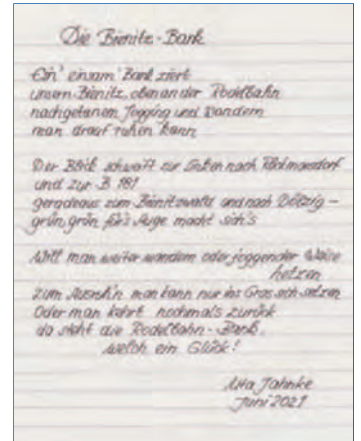 Die Bienitz-Bank
Ein' einsam' Bank ziert
unsern Bienitz, oben an der Rodelbahn
nach getanem Jogging und Wandern
man drauf ruhen kann
Der Blick schweift zur Linken nach Rückmarsdorf
und zur B 181
geradeaus zum Bienitzwald und nach Dölzig –
grün, grün für's Auge macht sich's
Will man weiter wandern oder joggender Weise
hetzen
zum Ausruh'n man kann nur ins Gras sich setzen
Oder man kehrt nochmals zurück
da steht die Rodelbahn-Bank,
welch ein Glück!
Jahnke
Juni 2021